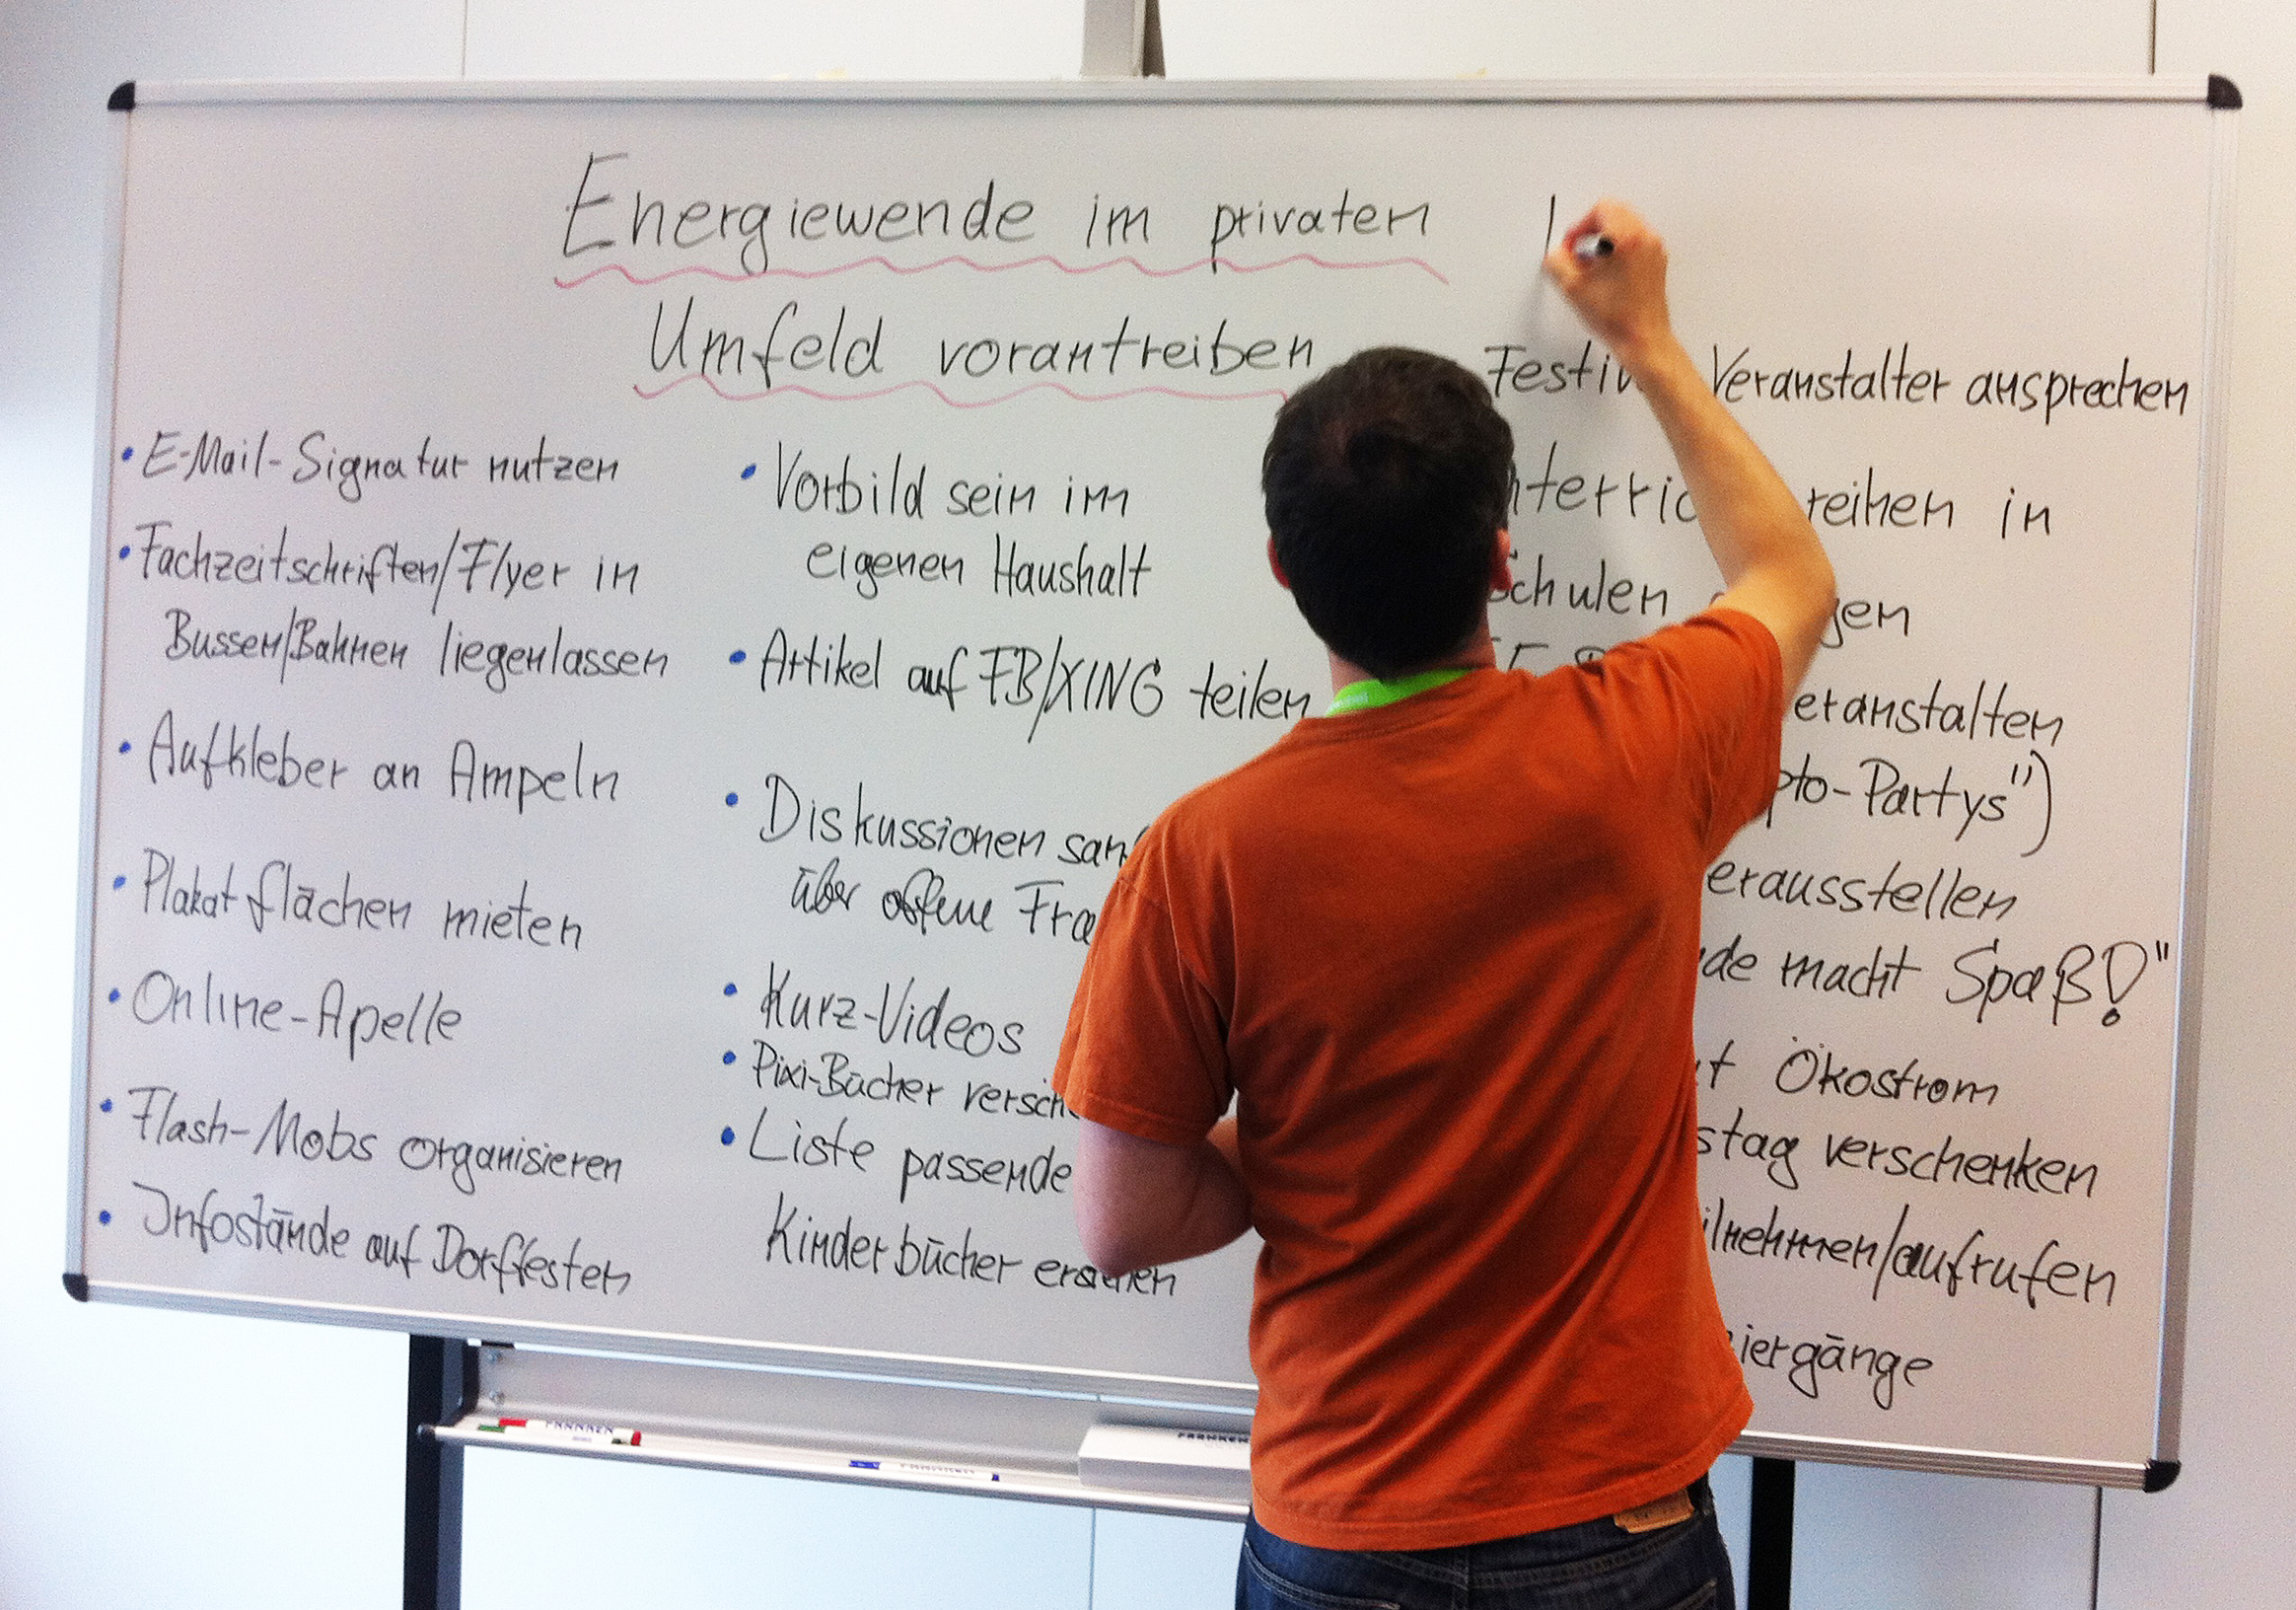 Energiewende im privaten
Umfeld vorantreiben
• E-Mail-Signatur nutzen
• Fachzeitschriften/Flyer in
Bussen/Bahnen liegenlassen
• Aufkleber an Ampeln
• Plakatflächen mieten
• Online-Apelle
• Flash-Mobs organisieren
• Infostände auf Dorffesten
• Vorbild sein im
eigenen Haushalt
• Artikel auf FB/XING teilen
• Diskussionen
über offene
• Kurz-Videos
• Pixi-Bücher
• Liste passende
Kinderbücher erstellen
Veranstalter ansprechen
in
Schulen
eranstalten
pto-Partys")
erausstellen
macht Spaß!"
Ökostrom
stag verschenken
ilnehmen/aufrufen
iergänge
FRANKEN
FRANKEN